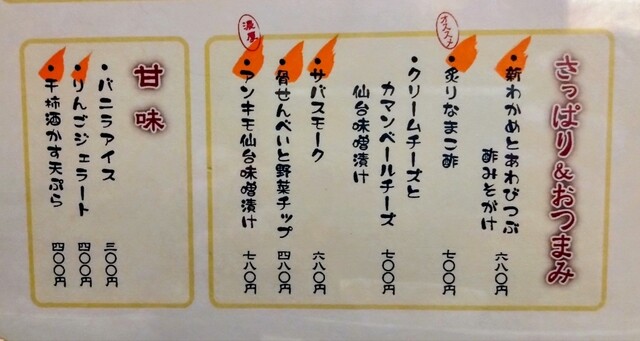 さっぱり&おつまみ
・新わかめとあわびつぶ
酢みそがけ
六八〇円
オススメ
・炙りなまこ酢
七〇〇円
・クリームチーズと
カマンベールチーズ
仙台味噌漬け
七〇〇円
・サバスモーク
六八〇円
・骨せんべいと野菜チップ
四八〇円
濃厚
・アンキモ仙台味噌漬け
七八〇円
甘味
・バニラアイス
三〇〇円
・りんごジェラート
四〇〇円
・干柿酒かす天ぷら
四〇〇円